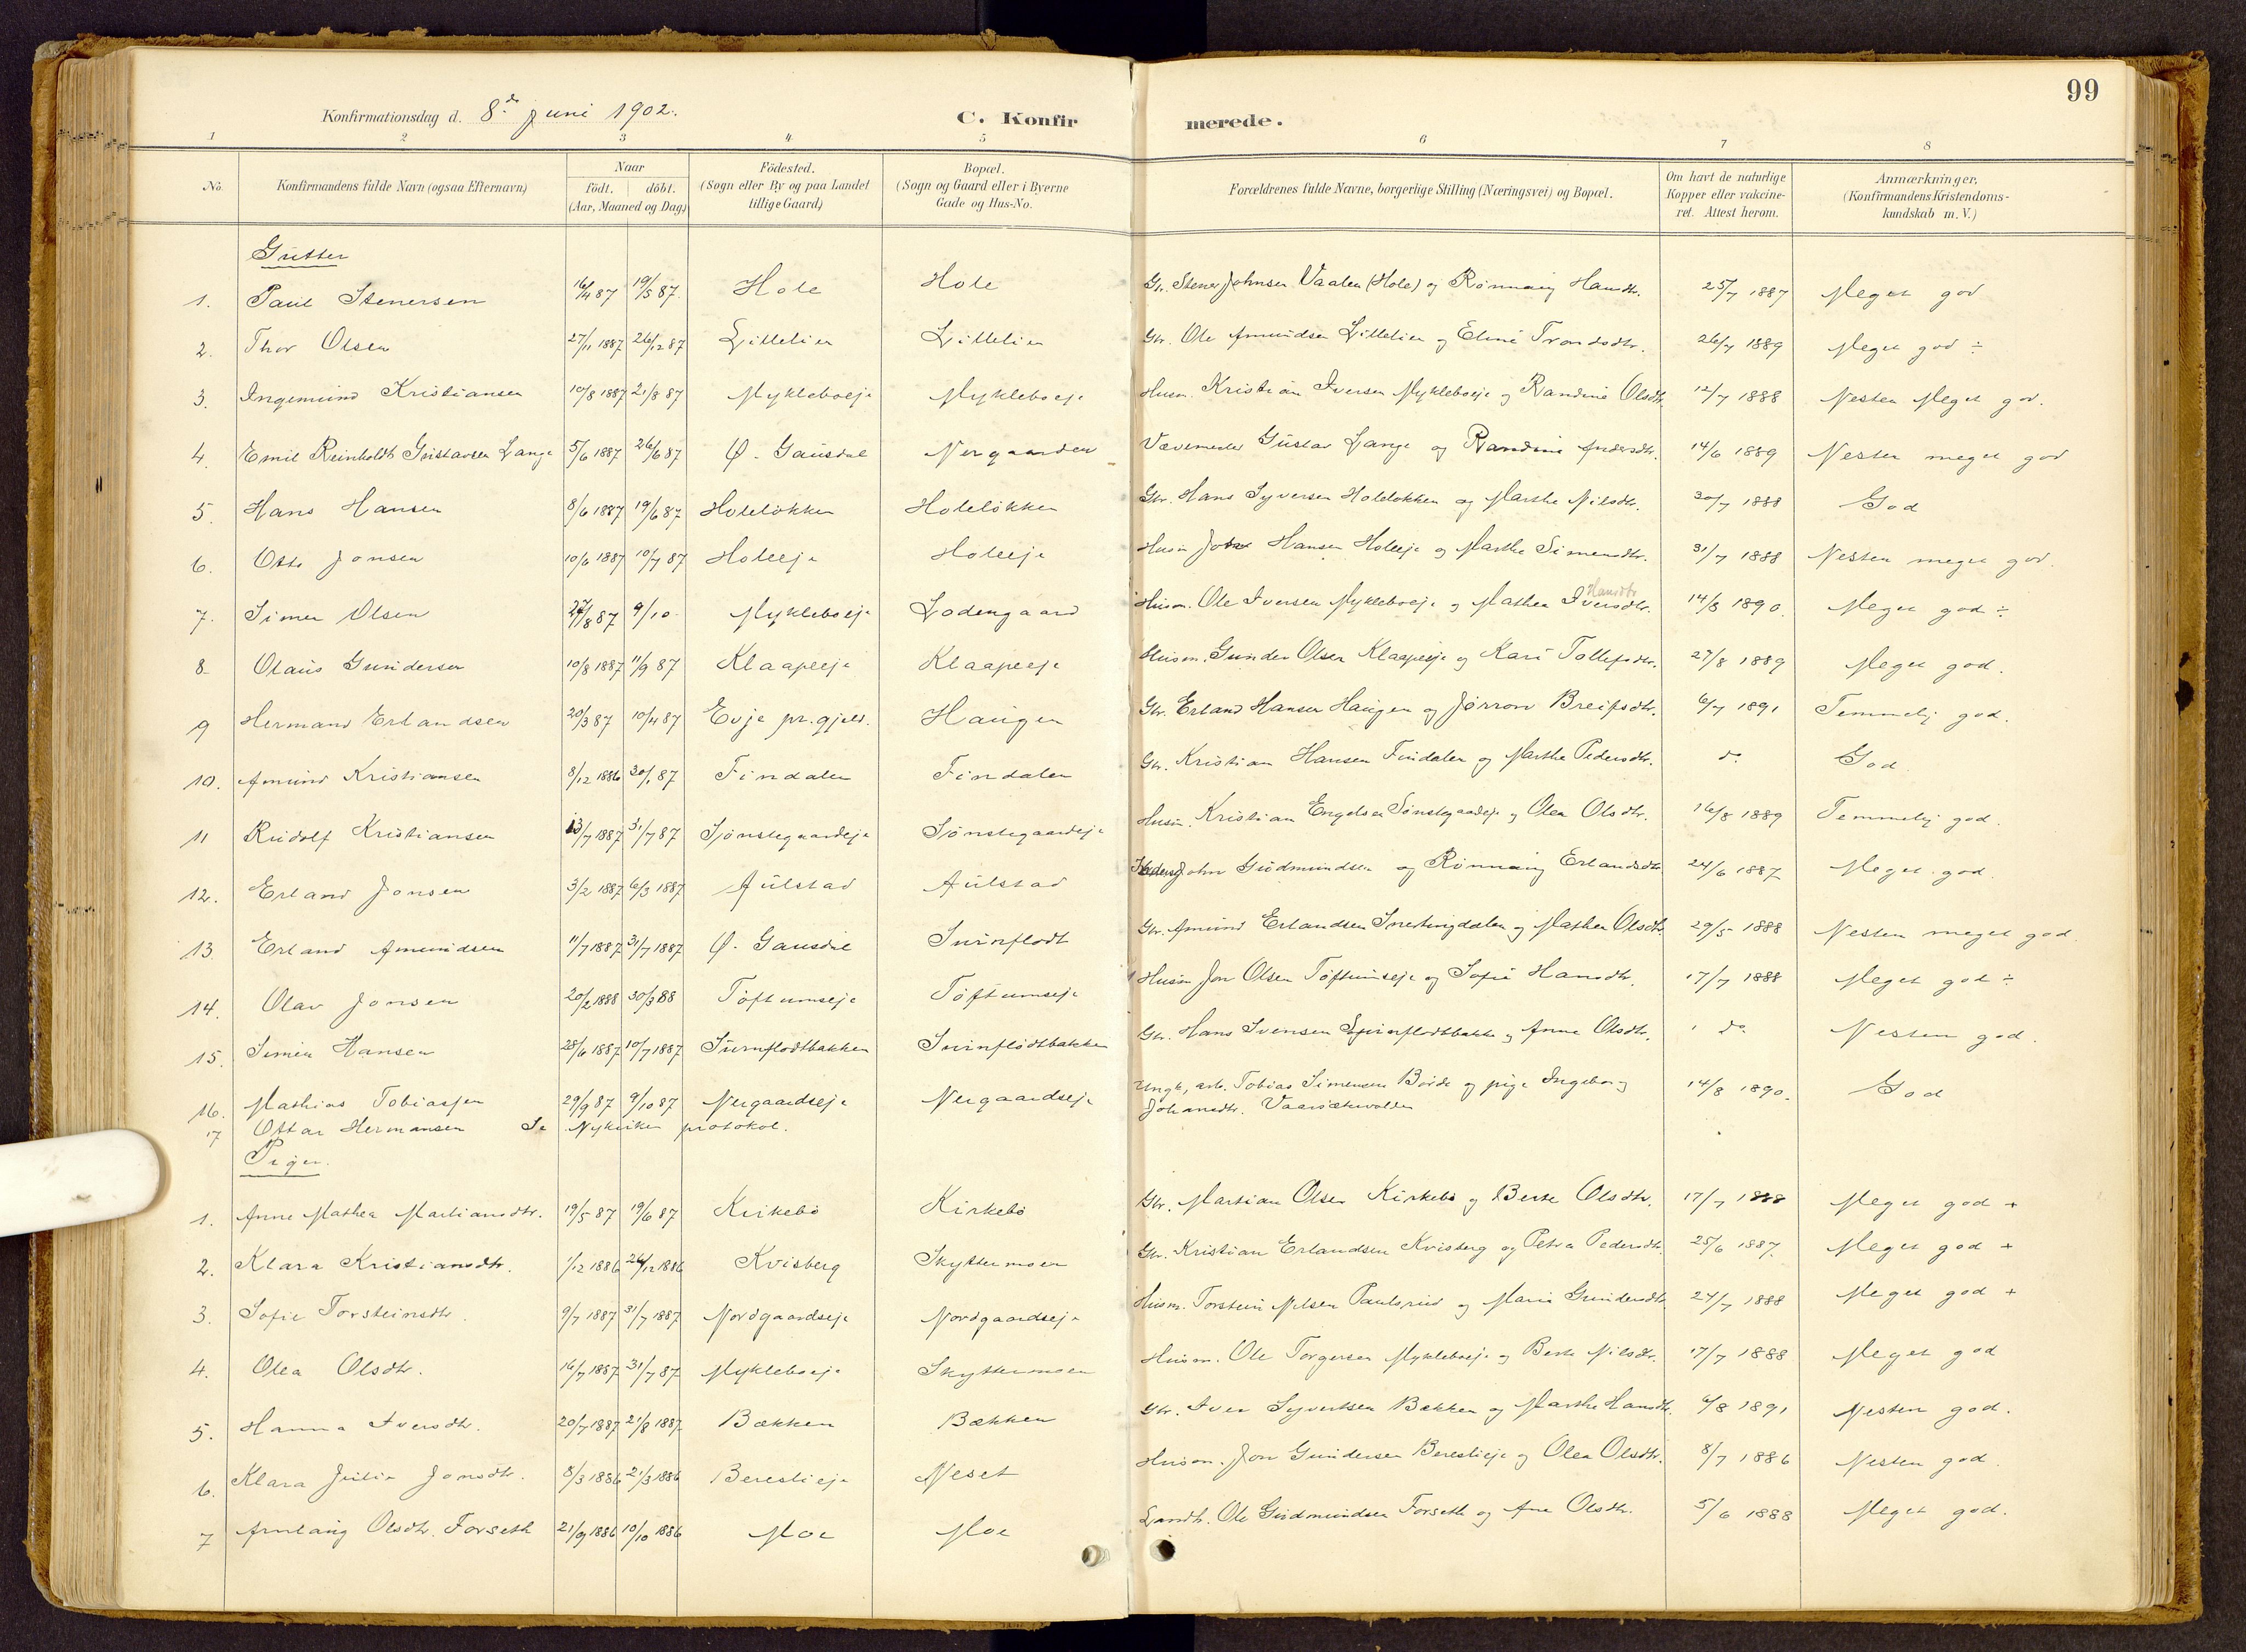 99
Konfirmationsdag d. 8de Juni 1902.
C. Konfirmerede.
1 2 3 4 5 6 7 8
No. Konfirmandens fulde Navn (ogsaa Efternavn) Naar födt. döbt. (Aar, Maaned og Dag) Födested. (Sogn eller By og paa Landet tillige Gaard) Bopæl. (Sogn og Gaard eller i Byerne Gade og Hus-No. Forældrenes fulde Navne, borgerlige Stilling (Næringsvei) og Bopæl. Om havt de naturlige Kopper eller vakcineret. Attest herom. Anmærkninger, (Konfirmandens Kristendomskundskab m. V.)
Gutter
1. Paul Stenersen 16/4 87 19/5 87. Hole Hole Gbr. Stener Johnsen Vaalen (Hole) og Rönnaug Hansdtr. 25/7 1887 Meget god
2. Thor Olsen 27/11 1887 26/12 87 Lillelien Lillelien Gbr. Ole Amundsen Lillelien og Eline Trondsdtr. 26/7 1889 Meget god ÷
3. Ingemund Kristiansen 10/8 1887 21/8 87 Mykleboeje Mykleboeje Husm. Kristian Iversen Mykleboeje og Randine Olsdtr. 12/7 1888 Nesten Meget god.
4. Emil Reinholdt Gustavsen Lange 5/6 1887 26/6 87 Ø. Gausdal Nergaarden Vævemester Gustav Lange og Randine Andersdtr. 14/6 1889 Nesten meget god
5. Hans Hansen 8/6 1887 19/6 87 Holelökken Holelökken Gbr. Hans Syversen Holelökken og Marthe Nilsdtr. 30/7 1888 God
6. Otto Jonsen 10/6 1887 10/7 87 Holeeje Holeeje Husm Johan Hansen Holeeje og Marthe Simensdtr. 31/7 1888 Nesten meget god.
7. Simen Olsen 27/8 87 9/10 Mykleboeje Lodengaard Husm. Ole Iversen Mykleboeje og Mathea Iversdtr. Hansdtr 14/8 1890. Meget god ÷
8. Olaus Gundersen 10/8 1887 11/9 87 Klaapeeje Klaapeeje Husm. Gunder Olsen Klaapeeje og Kari Tollefsdtr. 27/8 1889 Meget god.
9 Hermand Erlandsen 20/3 87 10/4 87 Evje pr.gjeld. Haugen Gbr. Erland Hansen Haugen og Jörron Breifsdtr. 6/7 1891 Temmelig god.
10. Amund Kristiansen 8/12 1886 30/1 87 Findalen Findalen Gbr. Kristian Hansen Findalen og Marthe Pedersdtr. do God.
11 Rudolf Kristiansen 13/7 1887 31/7 87 Sjönstegaardeje Sjönstegaardeje Husm. Kristian Engelsen Sönstegaardeje og Olea Olsdtr. 16/8 1889 Temmelig god.
12. Erland Jonsen 3/2 1887 6/3 1887 Aulstad Aulstad John Gudmundsen og Rönnaug Erlandsdtr. 24/6 1887 Meget god.
13. Erland Amundsen 11/7 1887 31/7 1887 Ø. Gausdal Surnflodt Gbr. Amund Erlandsen og Mathea Olsdtr. 29/5 1888 Nesten meget god.
14. Olav Jonsen 20/2 1888 30/3 88 Töftumseje Töftumseje Husm Jon Olsen Töftumseje og Sofie Hansdtr. 17/7 1888 Meget god ÷
15. Simen Hansen 28/6 1887 10/7 1887 Surnflodtbakken Surnflodtbakken Gbr. Hans Svensen Surnflodtbakken og Anne Olsdtr. do Nesten god.
16. Mathias Tobiassen 29/9 87 9/10 87 Nergaardseje Nergaardseje Ungk., arb. Tobias Simensen Böide og pige Ingeborg Johansdtr. 14/8 1890. God
17 Ottar Hermansen Se Nykirken protokol.
Piger.
1. Anne Mathea Martiansdtr. 19/5 87 19/6 87 Kirkebö Kirkebö Gbr. Martian Olsen Kirkebö og Berte Olsdtr. 17/7 1888 Meget god +
2. Klara Kristiansdtr. 1/12 1886 26/12 1886 Kvisberg Skyttermoen Gbr. Kristian Erlandsen Kvisberg og Petra Pedersdtr. 25/6 1887. Meget god +
3. Sofie Torsteinsdtr. 9/7 1887 31/7 1887 Nordgaardseje Nordgaardseje Husm. Torstein Nilsen Paulsrud og Marie Gundersdtr. 24/7 1888 Meget god +
4. Olea Olsdtr. 16/7 1887 31/7 87 Mykleboeje Skyttermoen Husm. Ole Torgersen Mykleboeje og Berte Nilsdtr. 17/7 1888 Meget god
5. Hanna Iversdtr. 20/7 1887 21/8 1887. Bækken Bækken Gbr. Iver Syvertsen Bækken og Marthe Hansdtr. 6/8 1891 Nesten god.
6. Klara Julie Jonsdtr. 8/3 1886 21/3 1886 Berestieje Neset Husm. Jon Gundersen Berestieje og Olea Olsdtr. 8/7 1886 Nesten god.
7 Amlaug Olsdtr. Forseth 21/9 1886 10/10 1886 Moe Moe Landh. Ole Gudmundsen Forseth og Ane Olsdtr. 5/6 1888 Meget god.